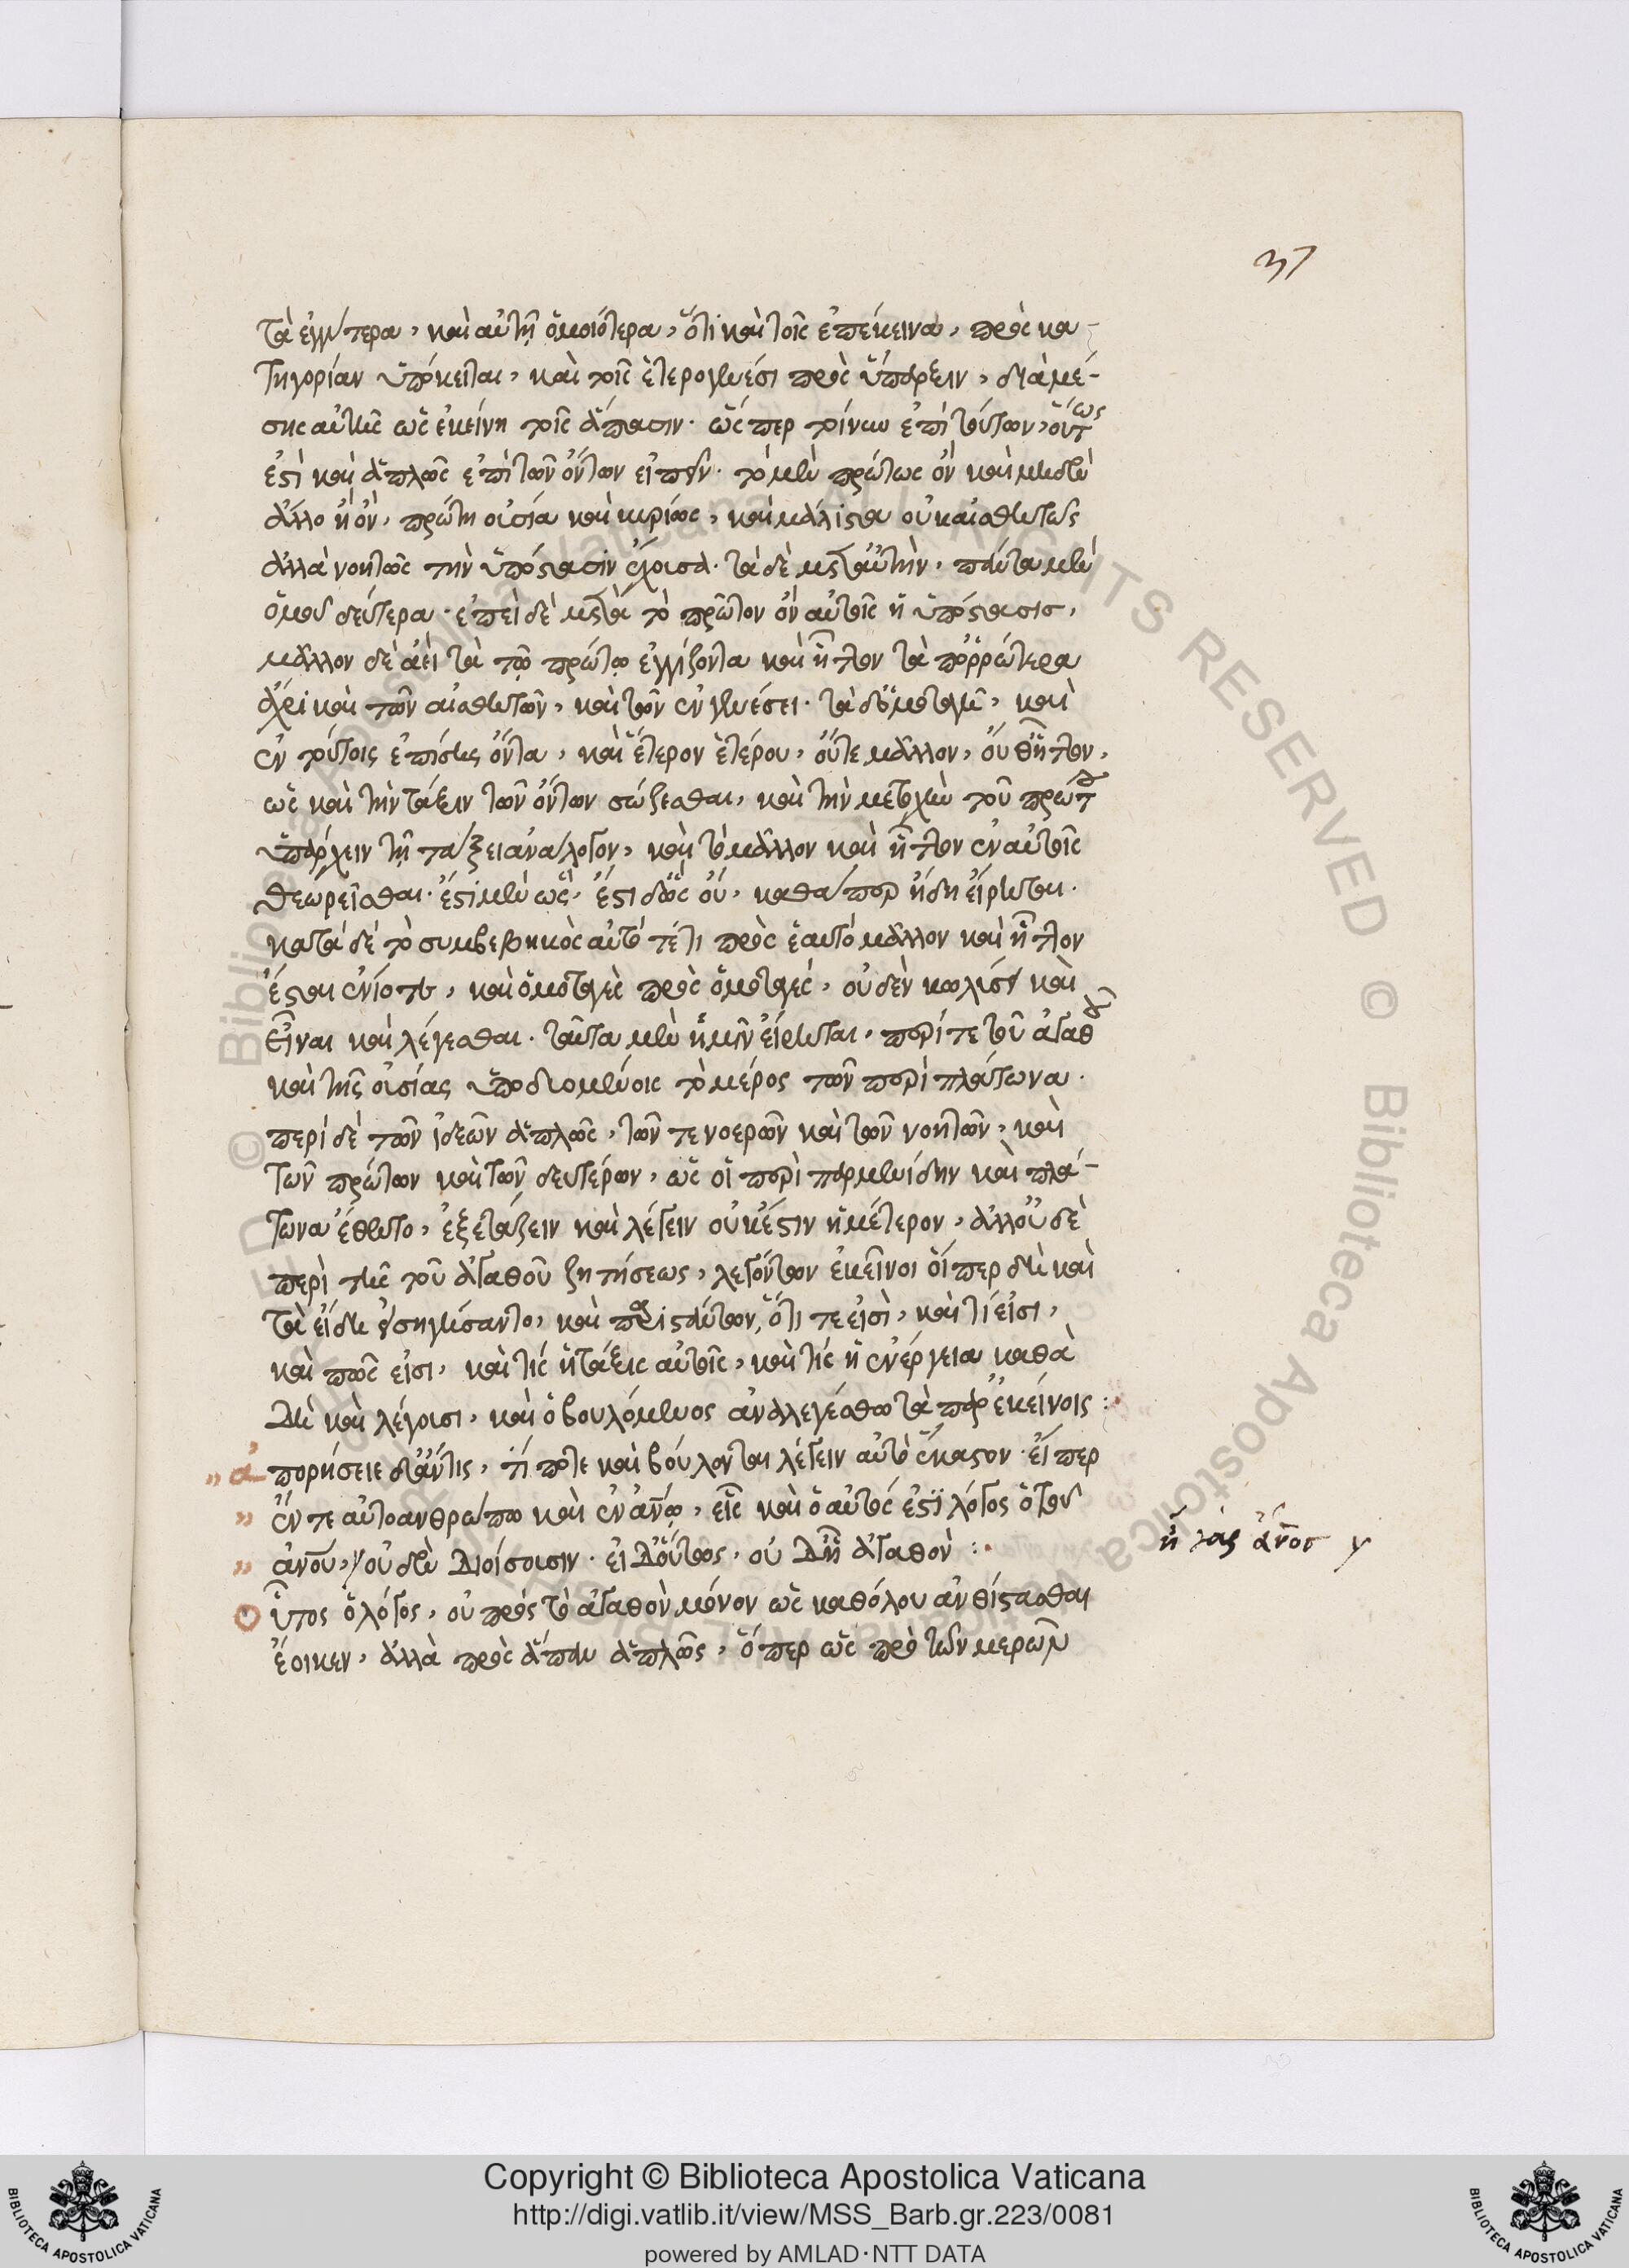 37
τὰ ἐγγύτερα, καὶ αὐτῇ ὁμοιότερα, ὅτι καὶ τοῖς ἐπέκεινα, πρὸς κα-
τηγορίαν ὑπόκειται, καὶ τοῖς ἑτερογενέσι πρὸς ὕπαρξιν, διὰ μέ-
σης αὐτῆς ὡς ἐκείνη τοῖς ἅπασιν. ὥς περ τοίνυν ἐπὶ τούτων, οὕτως
ἐστὶ καὶ ἁπλῶς ἐπὶ τῶν ὄντων εἰπεῖν. τὸ μὲν πρώτως ὂν καὶ μηδὲν
ἄλλο ἢ ὂν, πρώτη οὐσία καὶ κυρίως, καὶ μάλιστα οὐκ αἰσθητῶς
ἀλλὰ νοητῶς τὴν ὑπόστασιν ἔχουσα. τὰ δὲ μετ' αὐτὴν, πάντα μὲν
ὁμοῦ δεύτερα. ἐπεὶ δὲ μετὰ τὸ πρῶτον ὂν αὐτοῖς ἡ ὑπόστασις,
μᾶλλον δὲ ἀεὶ τὰ τῷ πρώτῳ ἐγγίζοντα καὶ ἧττον τὰ πορρώτερα
ἄχρι καὶ τῶν αἰσθητῶν, καὶ τῶν ἐν γενέσει. τὰ δ' ὁμοταγῆ, καὶ
ἐν τούτοις ἐπίσης ὄντα, καὶ ἕτερον ἑτέρου, οὔτε μᾶλλον, οὔθ' ἧττον,
ὡς καὶ τὴν τάξιν τῶν ὄντων σώζεσθαι, καὶ τὴν μετοχὴν τοῦ πρώτου
ὑπάρχειν τῇ τάξει ἀνάλογον, καὶ τὸ μᾶλλον καὶ ἧττον ἐν αὐτοῖς
θεωρεῖσθαι. ἔστι μὲν ὡς, ἔστι δ' ὡς οὐ, καθάπερ ἤδη εἴρηται.
κατὰ δὲ τὸ συμβεβηκὸς αὐτό τέ τι πρὸς ἑαυτὸ μᾶλλον καὶ ἧττον
ἔσται ἐνίοτε, καὶ ὁμοταγὲς πρὸς ὁμοταγές, οὐδὲν κωλύσει καὶ
εἶναι καὶ λέγεσθαι. ταῦτα μὲν ἡμῖν εἴρηται, περί τε τοῦ ἀγαθοῦ
καὶ τῆς οὐσίας ὑποδιομένοις τὸ μέρος τῶν περὶ πλάτωνα.
περὶ δὲ τῶν ἰδεῶν ἁπλῶς, τῶν τε νοερῶν καὶ τῶν νοητῶν, καὶ
τῶν πρώτων καὶ τῶν δευτέρων, ὡς οἱ περὶ παρμενίδην καὶ πλά-
τωνα ἔθεντο, ἐξετάζειν καὶ λέγειν οὐκ ἔστιν ἡμέτερον, ἀλλ' οὐδὲ
περὶ τῆς τοῦ ἀγαθοῦ ζητήσεως, λεγόντων ἐκεῖνοι οἵ περ δὴ καὶ
τὰ εἴδη εἰσηγήσαντο, καὶ παριστάντων, ὅτι τε εἰσὶ, καὶ τί εἰσι,
καὶ πῶς εἰσι, καὶ τίς ἡ τάξις αὐτοῖς, καὶ τίς ἡ ἐνέργεια καθὰ
δὴ καὶ λέγουσι, καὶ ὁ βουλόμενος ἀναλεγέσθω τὰ παρ' ἐκείνοις:
" ἀπορήσειε δ' ἄν τις, τί ποτε καὶ βούλονται λέγειν αὐτὸ ἕκαστον. εἴπερ
" ἔν τε αὐτοανθρώπῳ καὶ ἐν ἀν͞ῳ, εἷς καὶ ὁ αὐτός ἐστι λόγος ὁ τοῦ
" ἀν͞ου, οὐδὲν διοίσουσιν. εἰ δ' οὕτως, οὐ δ' ᾗ ἀγαθὸν:
ἢ γὰρ ἄν͞ος
Οὗτος ὁ λόγος, οὐ πρὸς τὸ ἀγαθὸν μόνον ὡς καθόλου ἀνθίστασθαι
ἔοικεν, ἀλλὰ πρὸς ἅπαν ἁπλῶς, ὅπερ ὡς πρὸ τῶν μερῶν
Copyright © Biblioteca Apostolica Vaticana
http://digi.vatlib.it/view/MSS_Barb.gr.223/0081
powered by AMLAD·NTT DATA